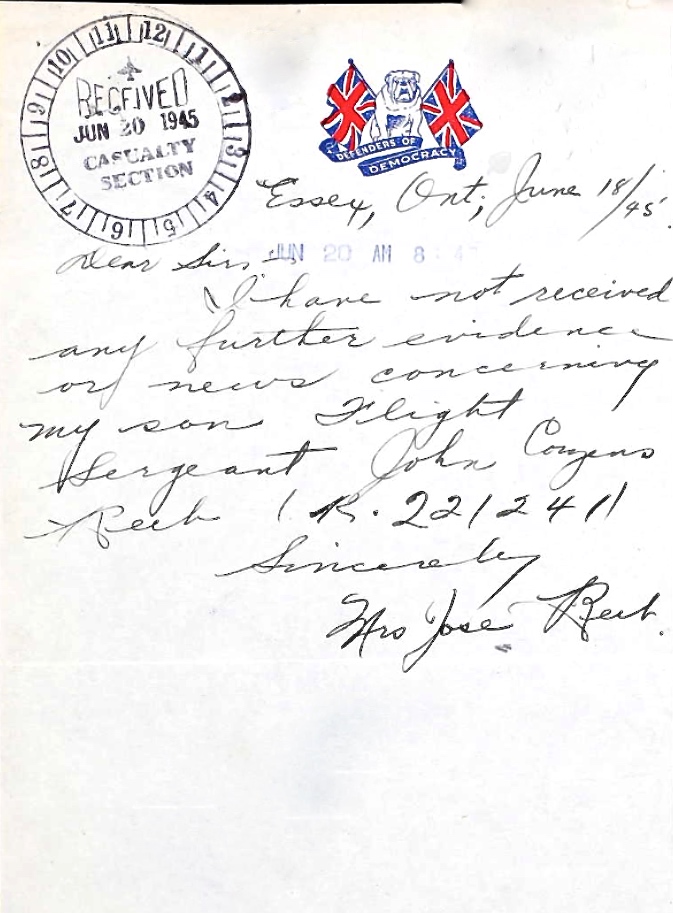 12 1 2 3 4 5 6 7 8 9 10 11
RECEIVED
JUN 20 1945
CASUALTY
SECTION
DEFENDERS OF
DEMOCRACY
Essex, Ont; June 18/45.
JUN 20 AM 8:4
Dear Sirs -
I have not received
any further evidence
or news concerning
my son Flight
Sergeant John Cozens
(R. 221241)
Sincerely
Mrs Jose